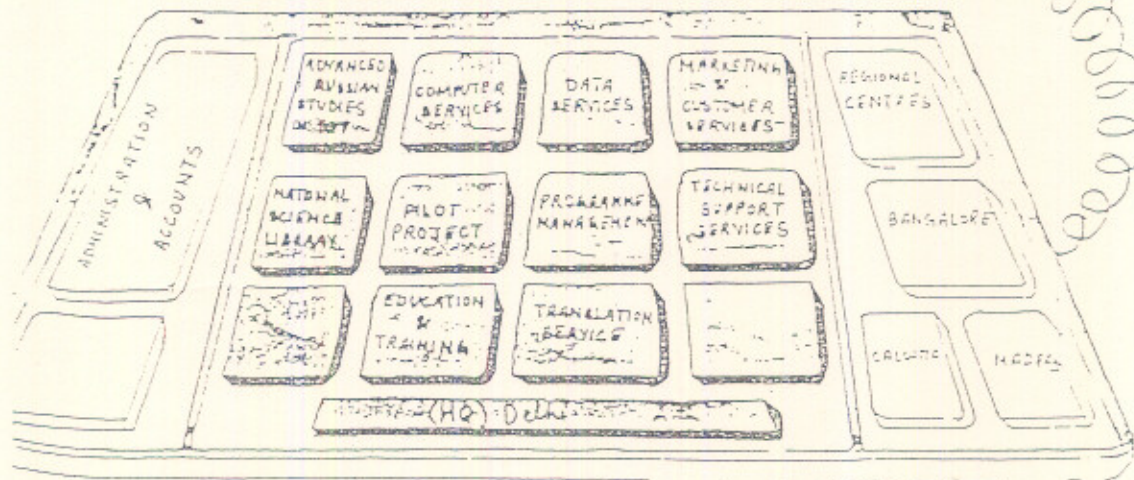 ADMINISTRATION
&
ACCOUNTS
ADVANCED
RUSSIAN
STUDIES
COMPUTER
SERVICES
DATA
SERVICES
MARKETING
&
CUSTOMER
SERVICES
NATIONAL
SCIENCE
LIBRARY
PILOT
PROJECT
PROGRAMME
MANAGEMEN
TECHNICAL
SUPPORT
SERVICES
EDUCATION
&
TRAINING
TRANSLATION
SERVICE
(HQ) Delhi
REGIONAL
CENTRES
BANGALORE
CALCUTTA
MADRAS